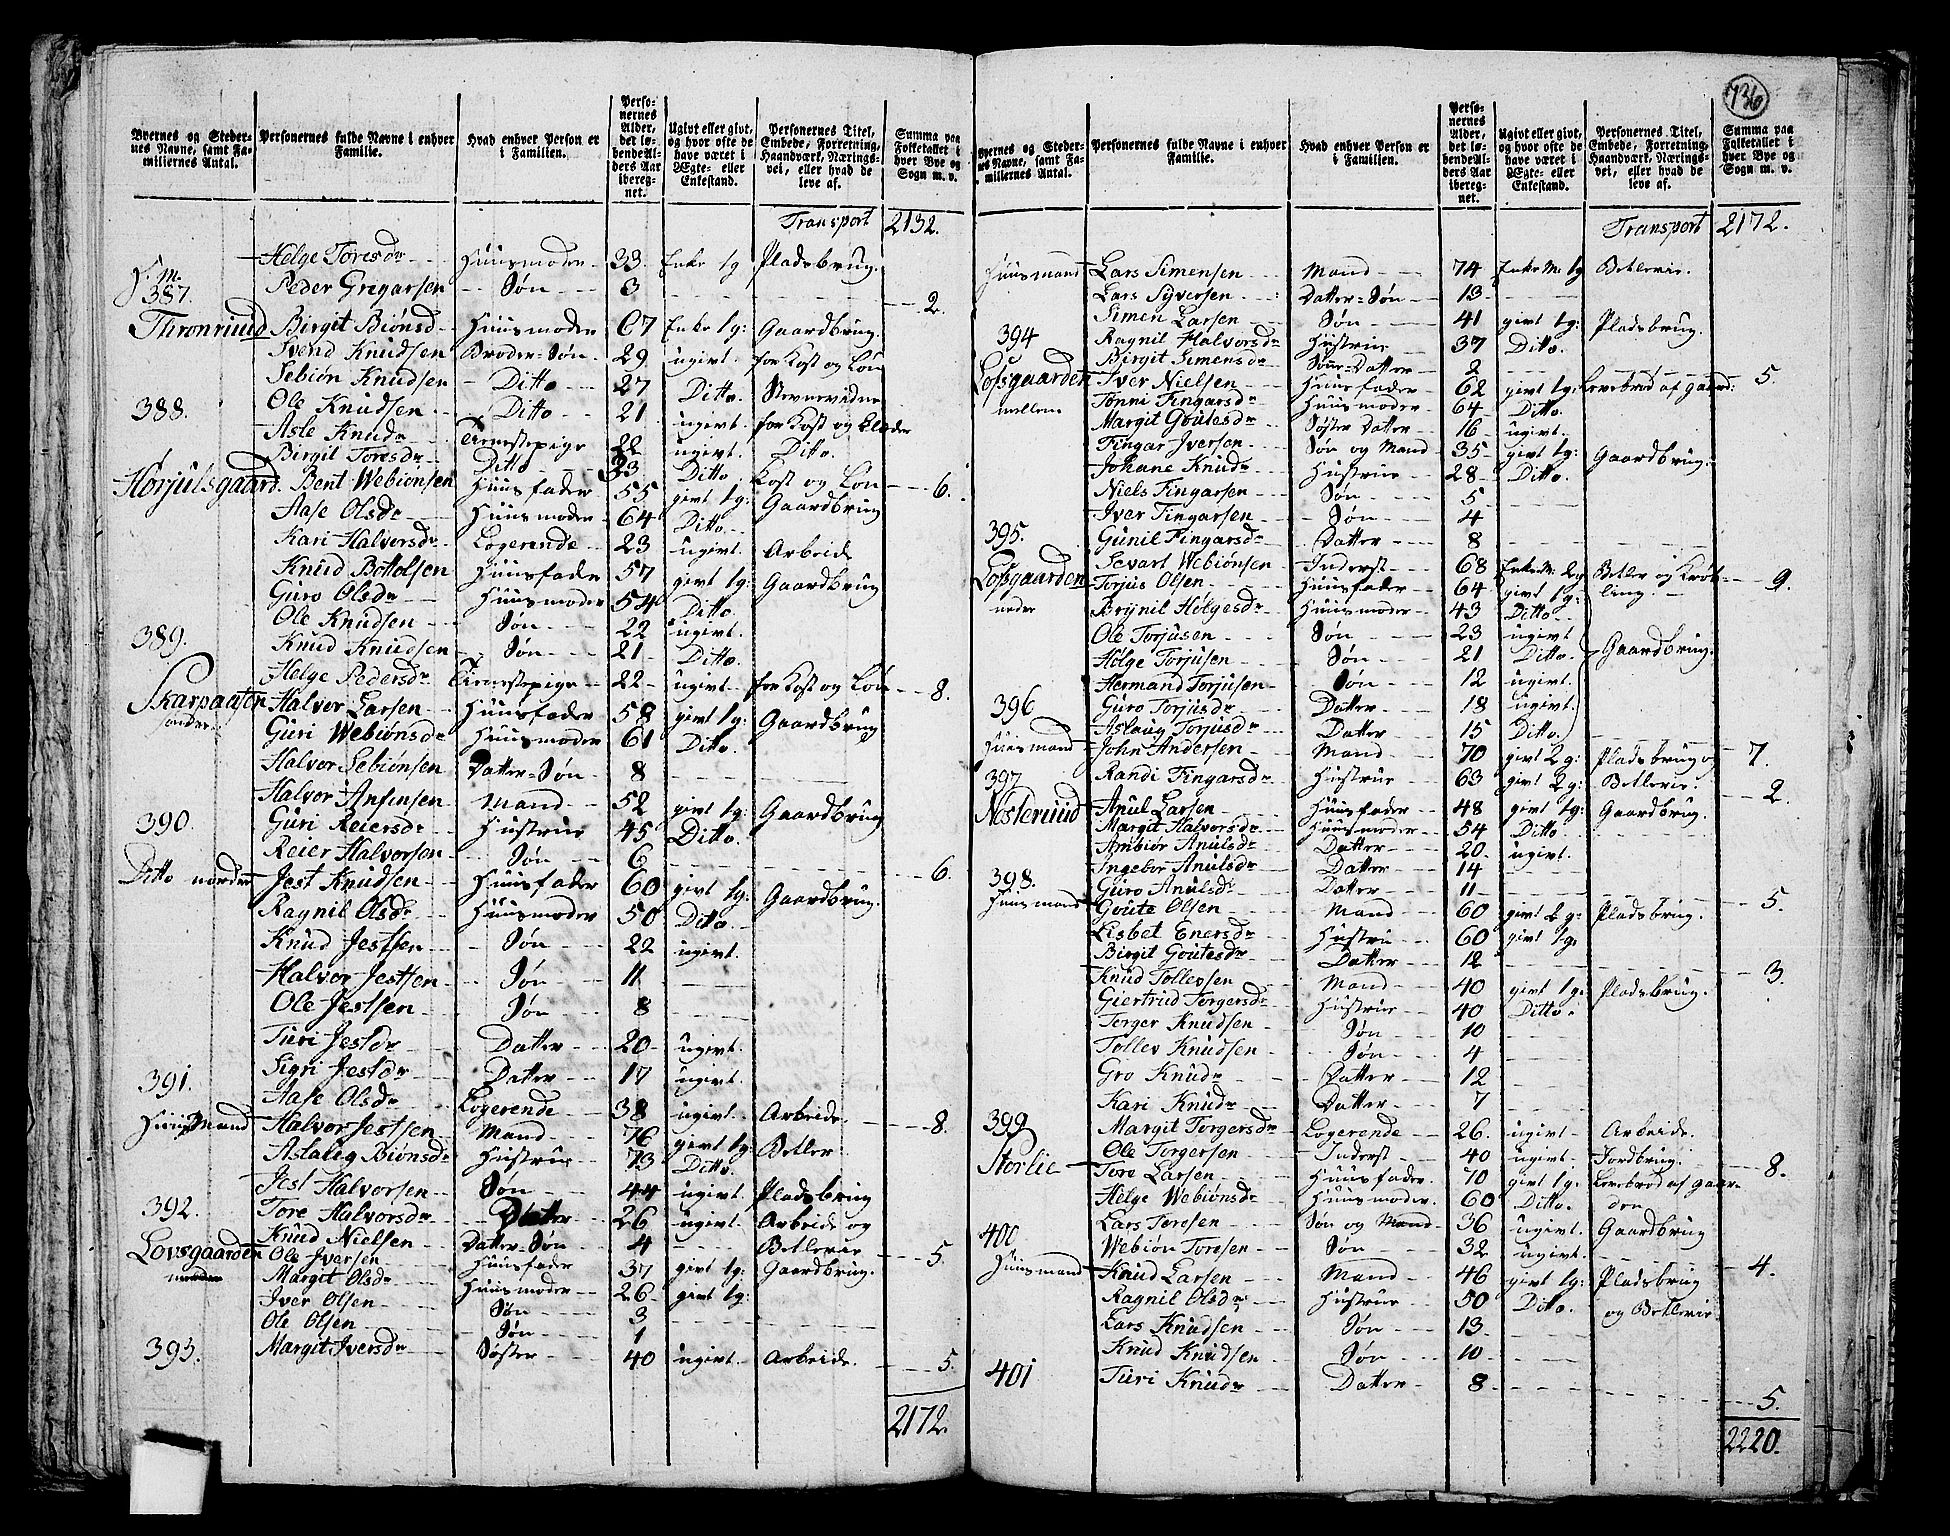 736
Byernes og Stedernes Navne, samt Familiernes Antal. | Personernes fulde Navne i enhver Familie. | Hvad enhver Person er i Familien. | Personernes Alder, det løbende Alders Aar iberegnet. | Ugivt eller givt, og hvor ofte de have været i Ægte- eller Enkestand. | Personernes Titel, Embede, Forretning, Haandværk, Næringsvei, eller hvad de leve af. | Summa paa Folketallet i hver Bye og Sogn m. v.
Transport 2132.
Helge Toresdr Huusmoder 33. Enke 1 g Pladsbrug.
H. m. 387. Peder Gregarsen Søn 3 2.
Thronruud Birgit Biønsd Huusmoder 67 Enke 1 g: Gaardbrug.
Svend Knudsen Broder-Søn 29. ugivt for Kost og Løn
Sebiøn Knudsen Ditto 27 Ditto
388. Ole Knudsen Ditto 21 ugivt for Kost og Klæder
Asle Knudr Tienestepige 22 ugivt. Ditto.
Birgit Toresdr Ditto 23 Ditto Kost og Løn 6.
Horjulsgaard Bent Webiønsen Huusfader 55 givt 1 g: Gaardbrug
Aase Olsdr Huusmoder 64 Ditto
Kari Halvorsdr Logerende 23 ugivt Arbeide
Knud Bottolsen Huusfader 57 givt 1 g: Gaardbrug
Guro Olsdr Huusmoder 54 Ditto
Ole Knudsen Søn 22 ugivt.
389. Knud Knudsen Søn 21 Ditto.
Helge Pedersdr Tienestepige 22 ugivt for Kost og Løn 8.
Skarpaasen Halvor Larsen Huusfader 58 givt 1 g: Gaardbrug
Guri Webiønsdr Huusmoder 61 Ditto.
Halvor Sebiønsen Datter-Søn 8
Halvor Ansensen Mand 52 givt 1 g: Gaardbrug
390. Guri Reiersdr Hustrue 45 Ditto.
Reier Halvorsen Søn 6 6.
Ditto nordre Jest Knudsen Huusfader 60 givt 1 g: Gaardbrug.
Ragnil Olsdr Huusmoder 50 Ditto.
Knud Jestsen Søn 22 ugivt.
Halvor Jestsen Søn 11
Ole Jestsen Søn 8
Turi Jestdr Datter 20 ugivt.
Sigri Jestdr Datter 17 ugivt.
391. Aase Olsdr Logerende 38 ugivt. Arbeide. 8.
Huus Mand Halvor Jestsen Mand 76 givt 1 g: Betler
Aslaug Biønsdr Hustrue 73 Ditto.
Jest Halvorsen Søn 44 ugivt. Pladsbrug
392. Tore Halvorsdr Datter 26 ugivt. Arbeide og
Knud Nielsen Datter-Søn 4 Betlerie 5.
Lovsgaarden Ole Iversen Huusfader 37 givt 1 g: Gaardbrug.
Margit Olsdr Huusmoder 26 givt 1 g:
Iver Olsen Søn 3
Ole Olsen Søn 1
393. Margit Iversdr Søster 40 ugivt. Arbeide. 5.
2172.
Byernes og Stedernes Navne, samt Familiernes Antal. | Personernes fulde Navne i enhver Familie. | Hvad enhver Person er i Familien. | Personernes Alder, det løbende Alders Aar iberegnet. | Ugivt eller givt, og hvor ofte de have været i Ægte- eller Enkestand. | Personernes Titel, Embede, Forretning, Haandværk, Næringsvei, eller hvad de leve af. | Summa paa Folketallet i hver Bye og Sogn m. v.
Transport 2172.
Huusmand Lars Simensen Mand 74 Enke M. 1 g Betlerie.
Lars Syversen Datter-Søn 13
Simen Larsen Søn 41 givt 1 g: Pladsbrug.
394 Ragnil Halvorsdr Hustrue 37 Ditto.
Birgit Simensdr Søne-Datter 2 5.
Lofsgaarden Iver Nielsen Huusfader 62 givt 1 g: Levebrød af gaard:
mellem Tonni Fingarsdr Huusmoder 64 Ditto.
Margit Goutesdr Søster Datter 16 ugivt.
Fingar Iversen Søn og Mand 35 givt 1 g: Gaardbrug.
Johane Knudr Hustrue 28 Ditto.
Niels Fingarsen Søn 5
Iver Fingarsen Søn 4
395. Gunil Fingarsdr Datter 8
Sevart Webiønsen Inderst 68 Enke M: 2 g Betler og Krøb- 9.
Lofsgaarden Torjus Olsen Huusfader 64 givt 1 g: ling
nedre Brynil Holgesdr Huusmoder 43 Ditto
Ole Torjusen Søn 23 ugivt
Holge Torjusen Søn 21 Ditto. Gaardbrug.
Hermand Torjusen Søn 12 ugivt.
396 Guro Torjusdr Datter 18 ugivt.
Aslaug Torjusdr Datter 15 Ditto. 7.
Huusmand John Andersen Mand 70 givt 2 g: Pladsbrug og
397 Randi Fingarsdr Hustrue 63 givt 2 g: Betlerie. 2.
Nesteruud Anul Larsen Huusfader 48 givt 1 g: Gaardbrug.
Margit Halvorsdr Huusmoder 54 Ditto
Ambiør Anulsdr Datter 20 ugivt.
Ingebor Anulsdr Datter 14
398. Guro Anulsdr Datter 11 5.
Huusmand Goute Olsen Mand 60 givt 2 g: Pladsbrug.
Lisbet Enersdr Hustru 60 givt 1 g:
Birgit Goutesdr Datter 12 3.
Knud Tollevsen Mand 40 givt 1 g: Pladsbrug.
Giertrud Torgersdr Hustrue 40 Ditto.
Torger Knudsen Søn 10
Tollev Knudsen Søn 4
Gro Knudr Datter 12
Kari Knudr Datter 7
399 Margit Torgersdr Logerende 26. ugivt Arbeide.
Ole Torgersen Inderst 40 ugivt. Jordbrug. 8.
Storlie Tore Larsen Huusfader. 70 givt 1 g: Levebrød af Gaar-
Helge Webiønsdr Huusmoder. 60 Ditto. den
Lars Toresen Søn og Mand 36 ugivt. Gaardbrug
400 Webiøn Toresen Søn 32 ugivt. 4.
Huusmand Knud Larsen Mand 46 givt 1 g: Pladsbrug
Ragnil Olsdr Hustrue 50 Ditto. og Betlerie.
Lars Knudsen Søn 13
Knud Knudsen Søn 10
401 Turi Knudr Datter 8 5.
2220.